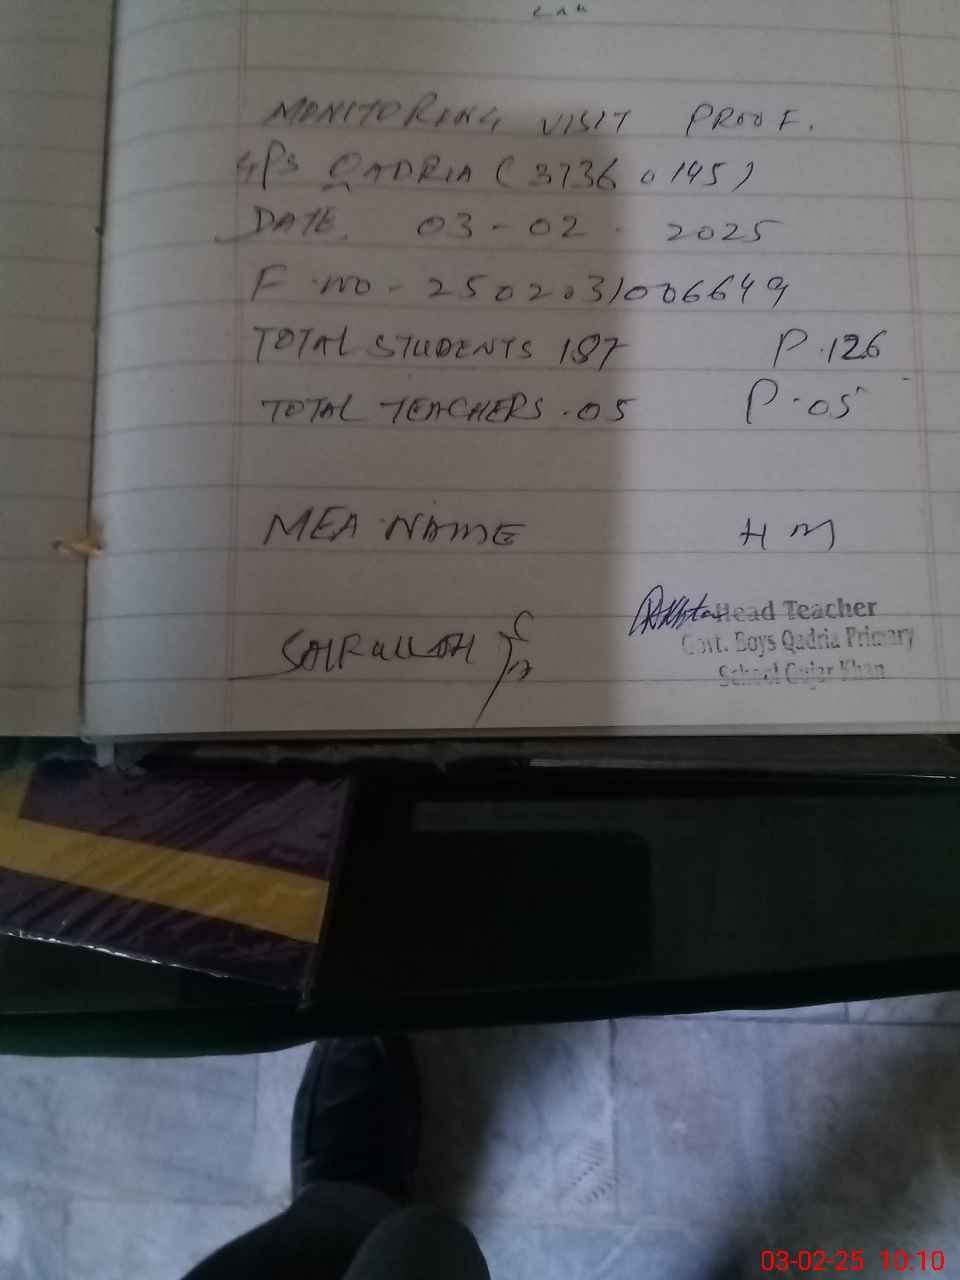 MONITORING VISIT PROOF.
GPS QADRIA (37360145)
DATE. 03-02-2025
F.no-2502031006649
TOTAL STUDENTS 187 P.126
TOTAL TEACHERS.05 P.05
MEA NAME HM
Head Teacher
Govt. Boys Qadria Primary
School Gujar Khan
03-02-25 10:10